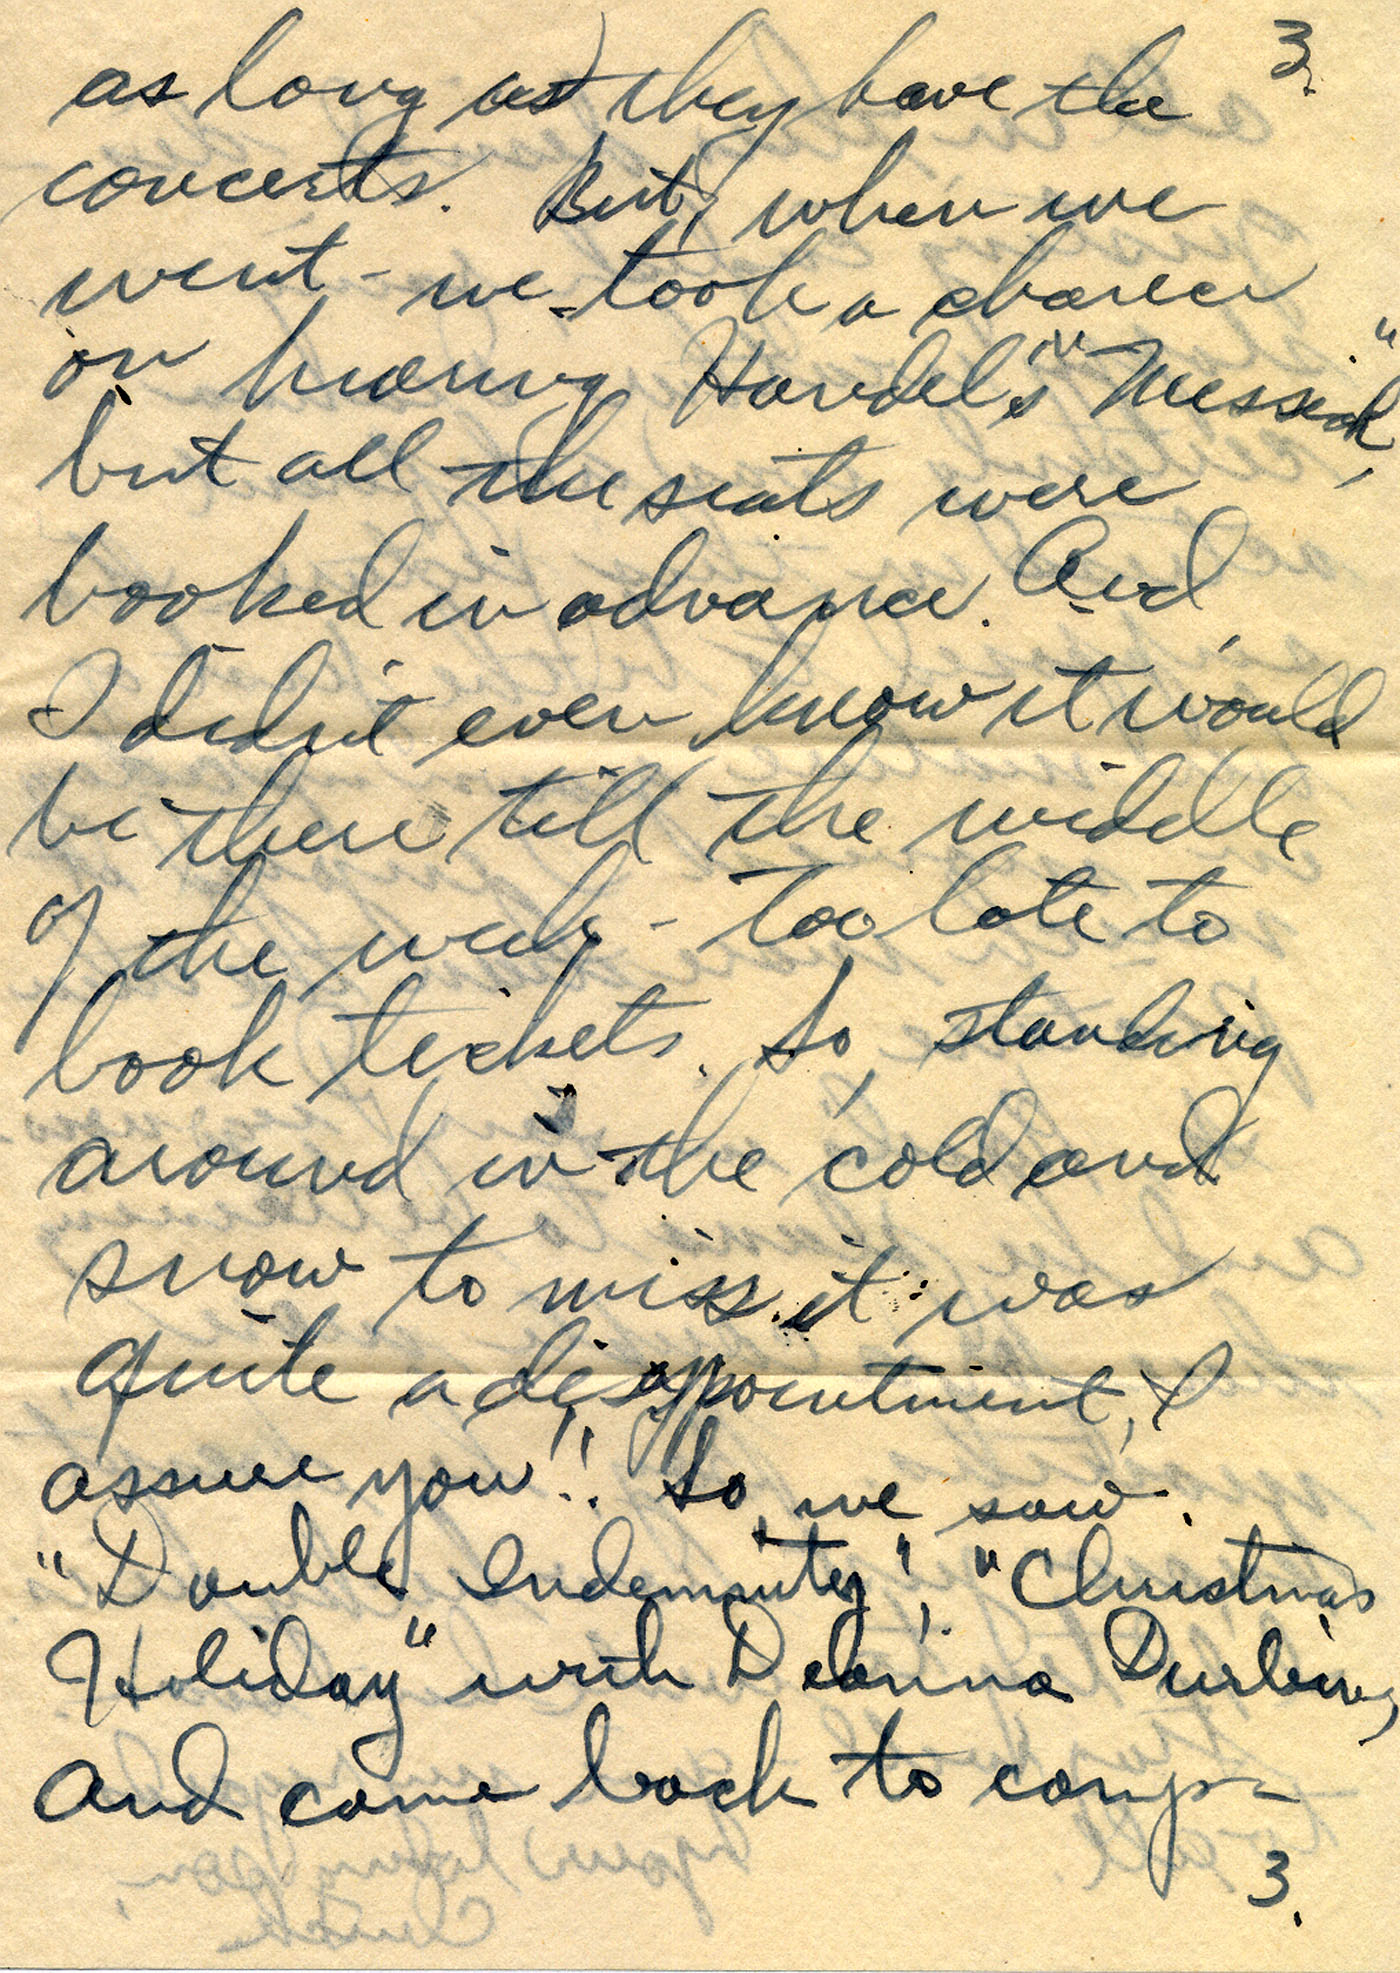 3.
as long as they have the
concerts. But, when we
went - we took a chance
on hearing Handel's "Messiah",
but all the seats were
booked in advance. And,
I didn't even know it would
be there till the middle
of the week - too late to
book tickets. So, standing
around in the cold and
snow to miss it was
quite a disappointment, I
assure you!! So, we saw
"Double Indemnity", "Christmas
Holiday" with Deanna Durbin,
and came back to camp -
3.